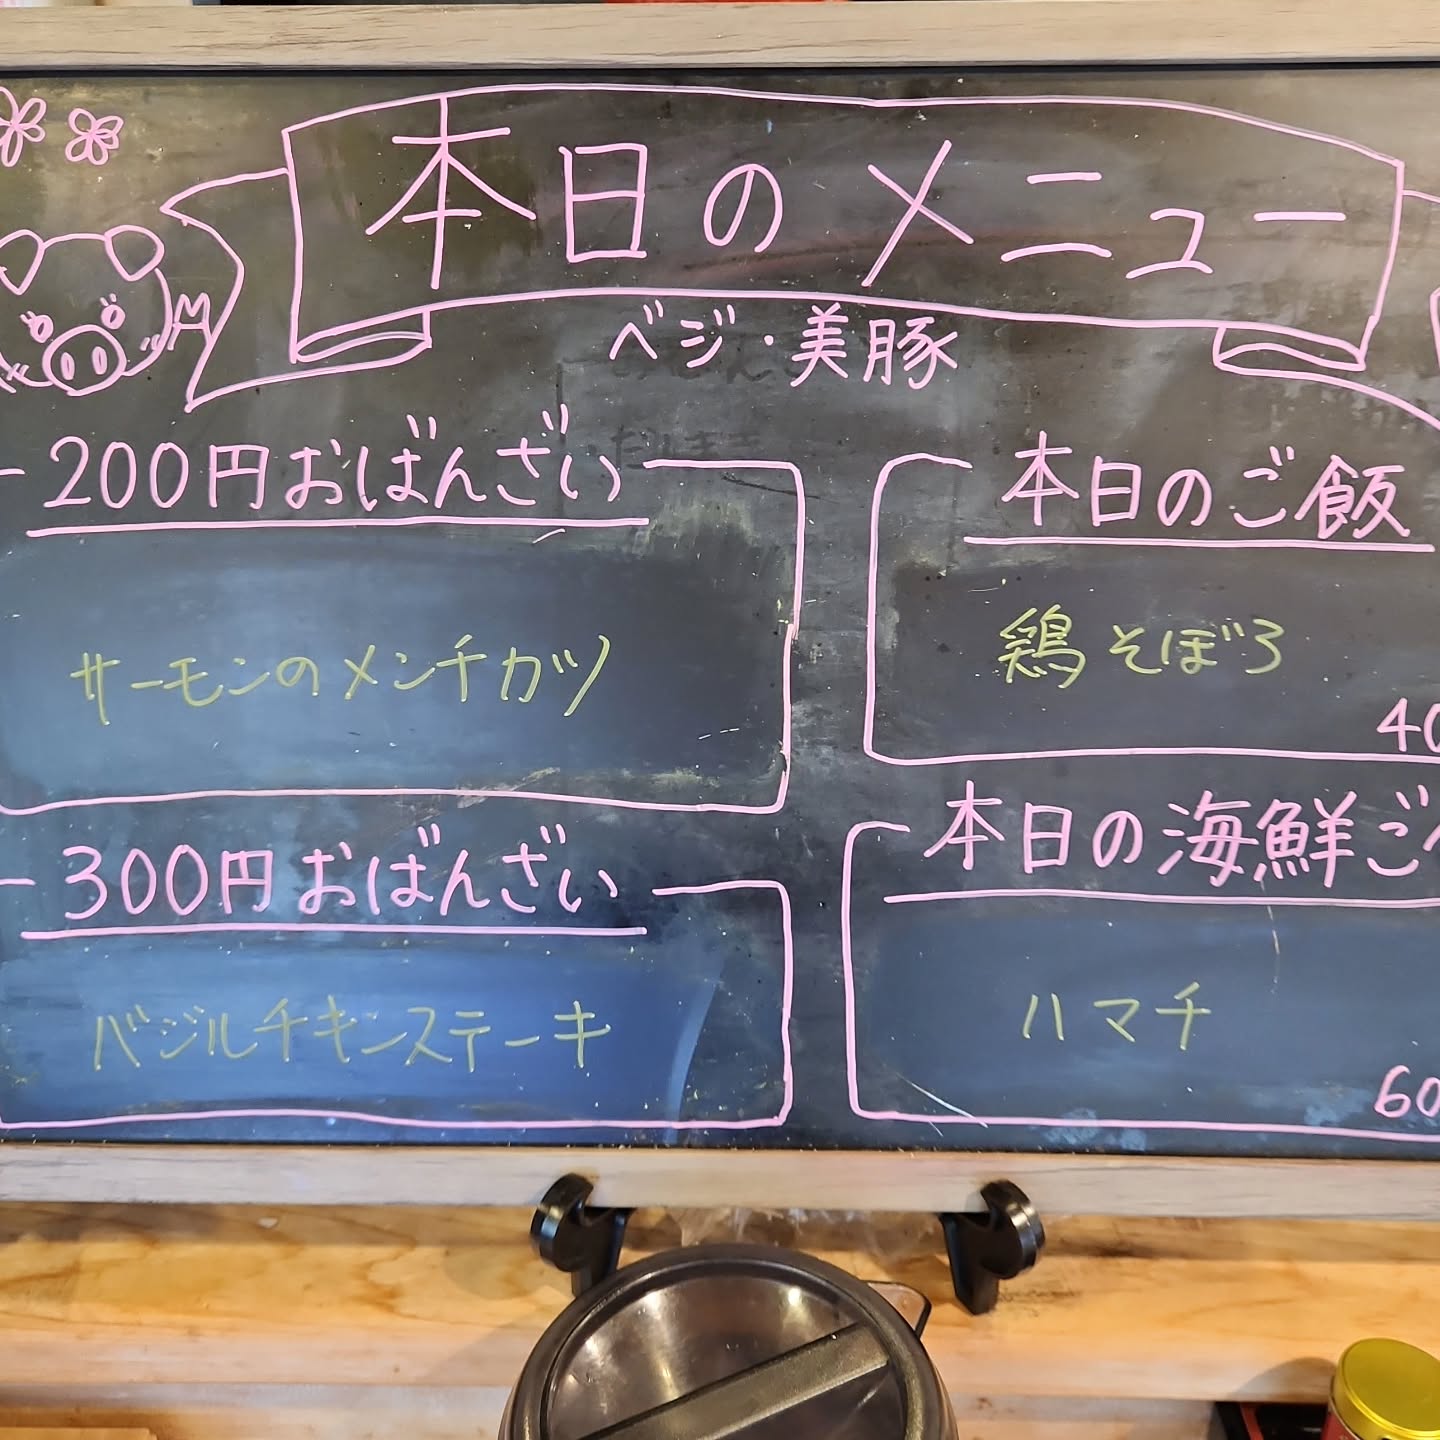 本日のメニュー
ベジ・美豚
200円おばんざい
サーモンのメンチカツ
300円おばんざい
バジルチキンステーキ
本日のご飯
鶏そぼろ
40
本日の海鮮ご
ハマチ
60